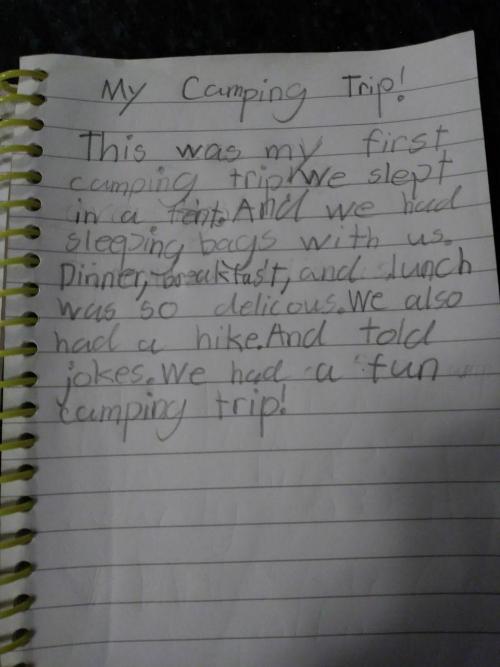 My Camping Trip!
This was my first
camping trip. We slept
in a tent. And we had
sleeping bags with us.
Dinner, breakfast, and lunch
was so delicous. We also
had a hike. And told
jokes. We had a fun
camping trip!